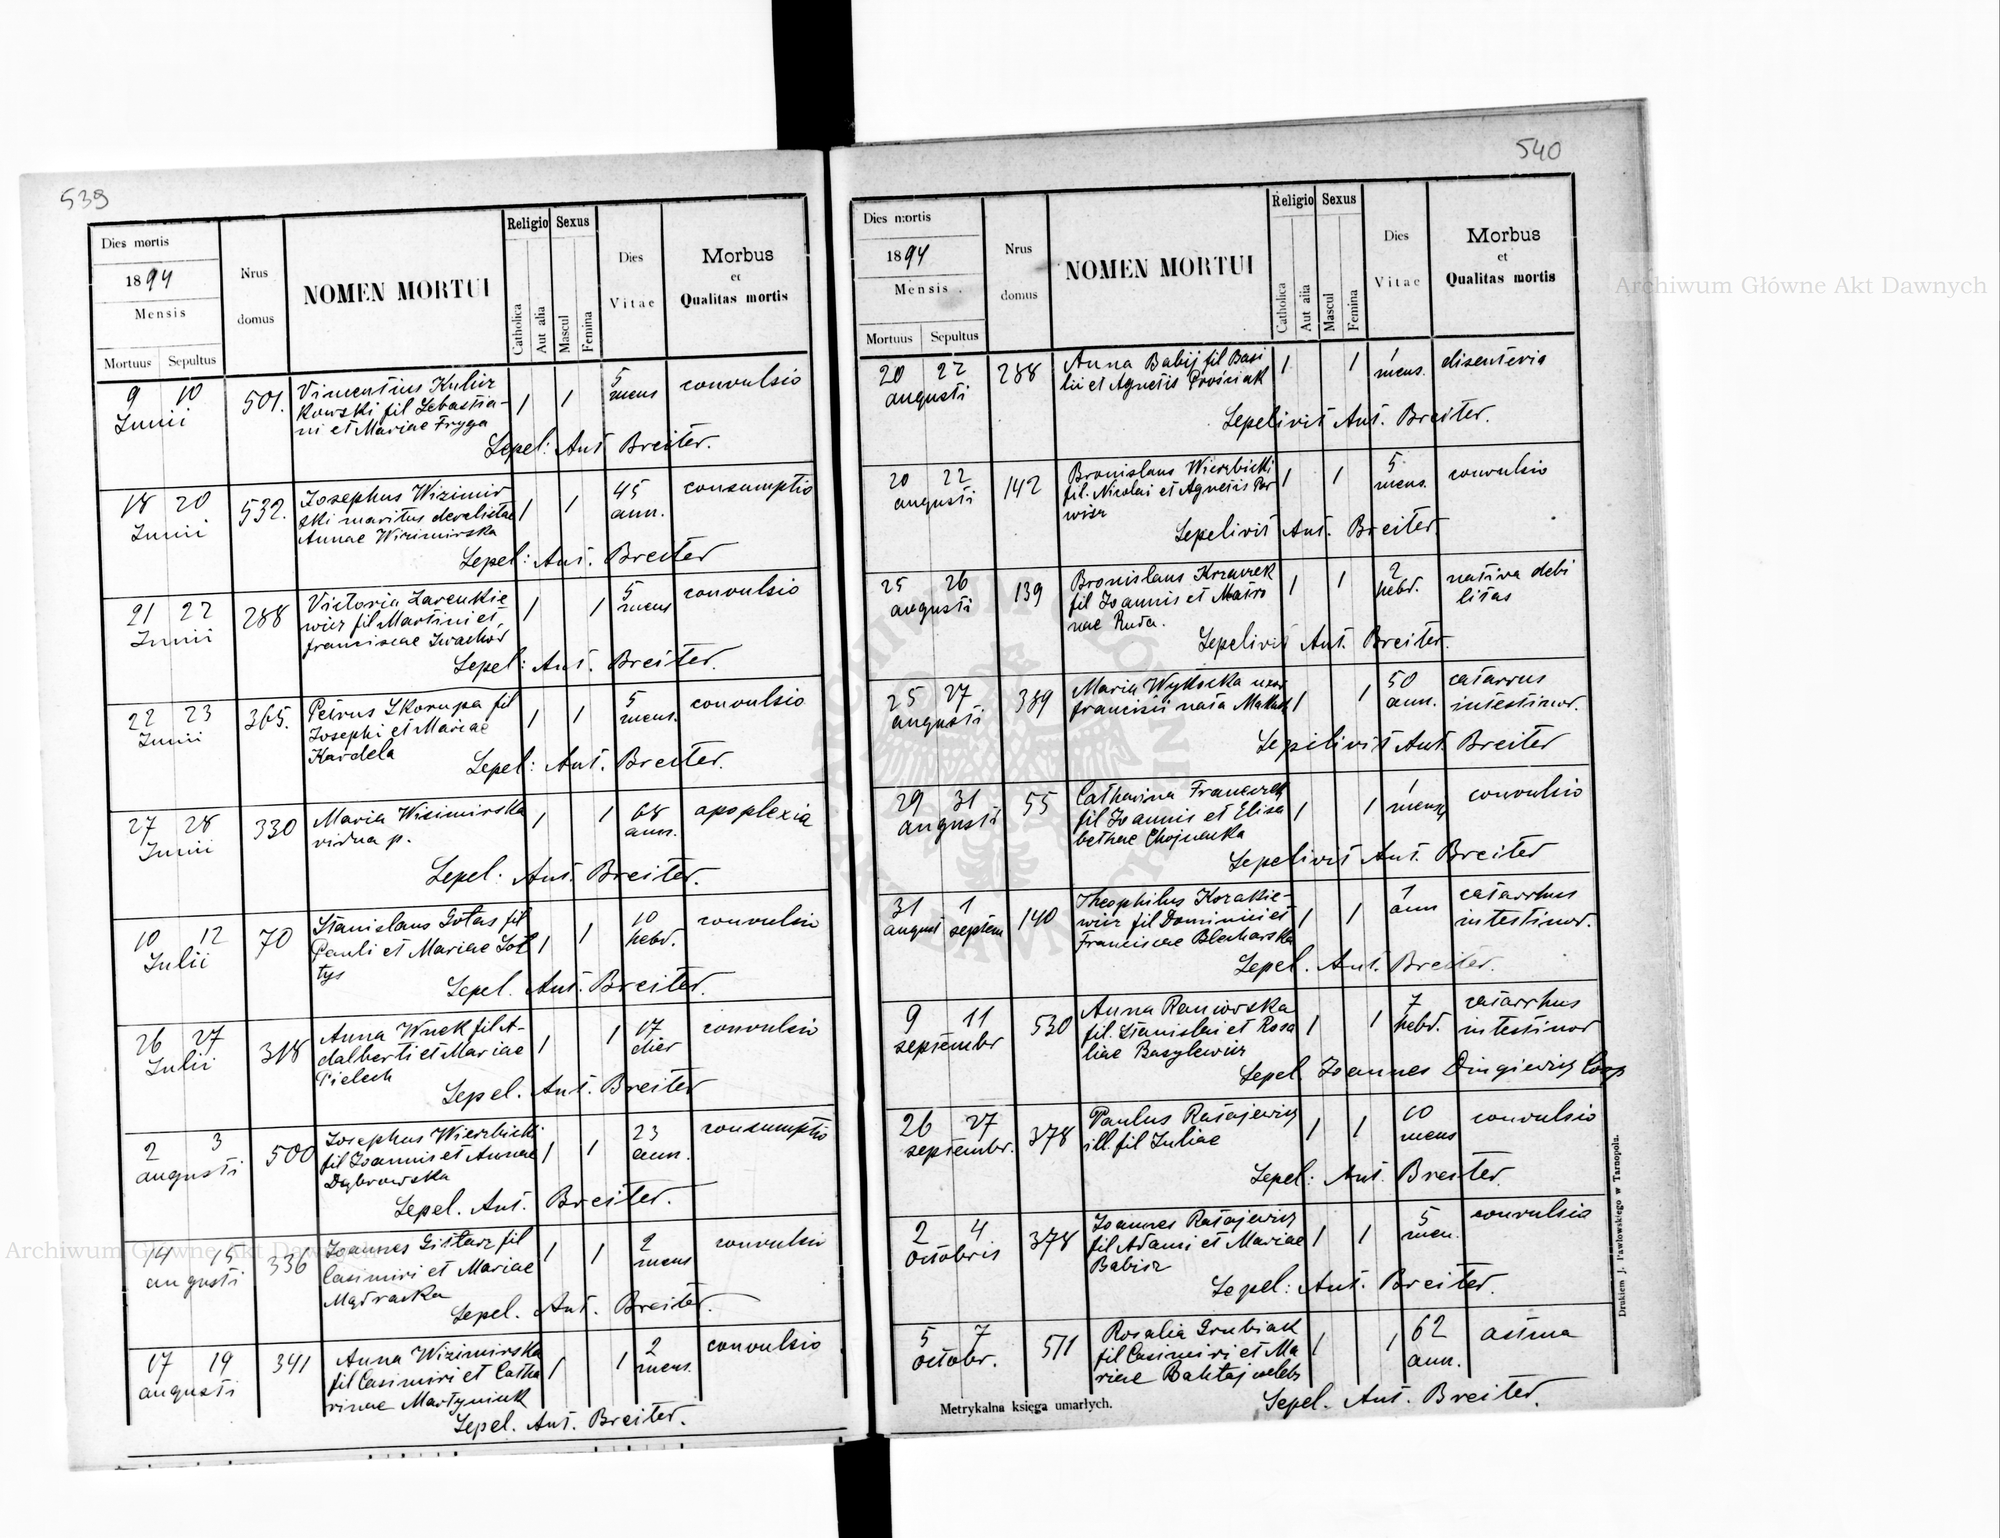 539
Dies mortis
1894
Mensis
Mortuus Sepultus
Nrus domus
NOMEN MORTUI
Religio
Catholica
Aut alia
Sexus
Mascul
Femina
Dies Vitae
Morbus
et
Qualitas mortis
9 10 Junii 501. 1 1 5 mens convulsio
kowski fil Sebastia-
ni et Mariae Fryga
Sepel: Ant Breiter.
18 20 Junii 532. Josephus Wizimir 1 1 45 ann. consumptio
ski maritus derelictae
Annae Wizimirska
Sepel: Ant. Breiter
21 22 Junii 288 Victoria Zarenkie 1 1 5 mens convulsio
wicz fil Martini et
franciscae Iwachow
Sepel: Ant. Breiter.
22 23 Junii 365. Petrus Skorupa fil 1 1 5 mens. convulsio
Josephi et Mariae
Kardela
Sepel: Ant. Breiter.
27 28 Junii 330 Maria Wizimirska 1 1 68 ann. apoplexia
vidua p.
Sepel: Ant. Breiter.
10 12 Julii 70 Stanislaus Gotas fil 1 1 10 hebd. convulsio
Pauli et Mariae Soł
tys
Sepel. Ant. Breiter.
26 27 Julii 318 Anna Wnek fil A- 1 1 17 dier convulsio
dalberti et Mariae
Pielech
Sepel. Ant. Breiter
2 3 augusti 500 Josephus Wierzbicki 1 1 23 ann. consumptio
fil Joannis et Annae
Dąbrowska
Sepel. Ant. Breiter.
14 15 augusti 336 Joannes Gistarz fil 1 1 2 mens convulsio
Casimiri et Mariae
Mądracka
Sepel. Ant. Breiter.
17 19 augusti 341 Anna Wizimirska 1 1 2 mens. convulsio
fil Casimiri et Catha
rinae Martyniuk
Sepel. Ant. Breiter.
540
Dies mortis
1894
Mensis
Mortuus Sepultus
Nrus domus
NOMEN MORTUI
Religio
Catholica
Aut alia
Sexus
Mascul
Femina
Dies Vitae
Morbus
et
Qualitas mortis
20 22 augusti 288 Anna Babij fil Basi 1 1 1 mens. disenteria
lii et Agnetis Prościak
Sepelivit Ant. Breiter.
20 22 augusti 142 Bronislaus Wierzbicki 1 1 5 mens. convulsio
fil. Nicolai et Agnetis
Sepelivit Ant. Breiter.
25 26 augusti 139 Bronislaus Krzaczek 1 1 2 hebd. nativa debi
fil Joannis et litas
nae Ruda.
Sepelivit Ant. Breiter.
25 27 augusti 389 Maria Wysocka uxor 1 1 50 ann. catarrus
francisii nata intestinor.
Sepelivit Ant. Breiter
29 31 augusti 55 Catharina Franczek 1 1 1 mensis convulsio
fil Joannis et Elisa
bethae Chojnacka
Sepelivit Ant. Breiter
31 august 1 septem 140 Theophilus Kozakie- 1 1 1 ann catarrhus
wicz fil Dominici et intestinor.
Franciscae Blecharska
Sepel. Ant. Breiter.
9 11 septembr 530 Anna Raniowska 1 1 7 hebd. catarrhus
fil. Stanislai et Rosa intestinor
liae Basylewicz
Sepel Joannes Dingiewicz Coop
26 27 septembr. 378 Paulus Ratajewicz 1 1 10 mens convulsio
ill. fil Juliae
Sepel: Ant. Breiter.
2 4 Octobris 378 Joannes Ratajewicz 1 1 5 men. convulsio
fil Adami et Mariae
Babisz
Sepel: Ant. Breiter.
5 7 octobr. 511 Rosalia Grubiak 1 1 62 ann. astma
fil Casimiri et Ma
riae Bałitaj caelebs
Sepel. Ant. Breiter.
Metrykalna księga umarłych.
Drukiem J. Pawłowskiego w Tarnopolu.
Archiwum Główne Akt Dawnych
Archiwum Główne Akt Dawnych